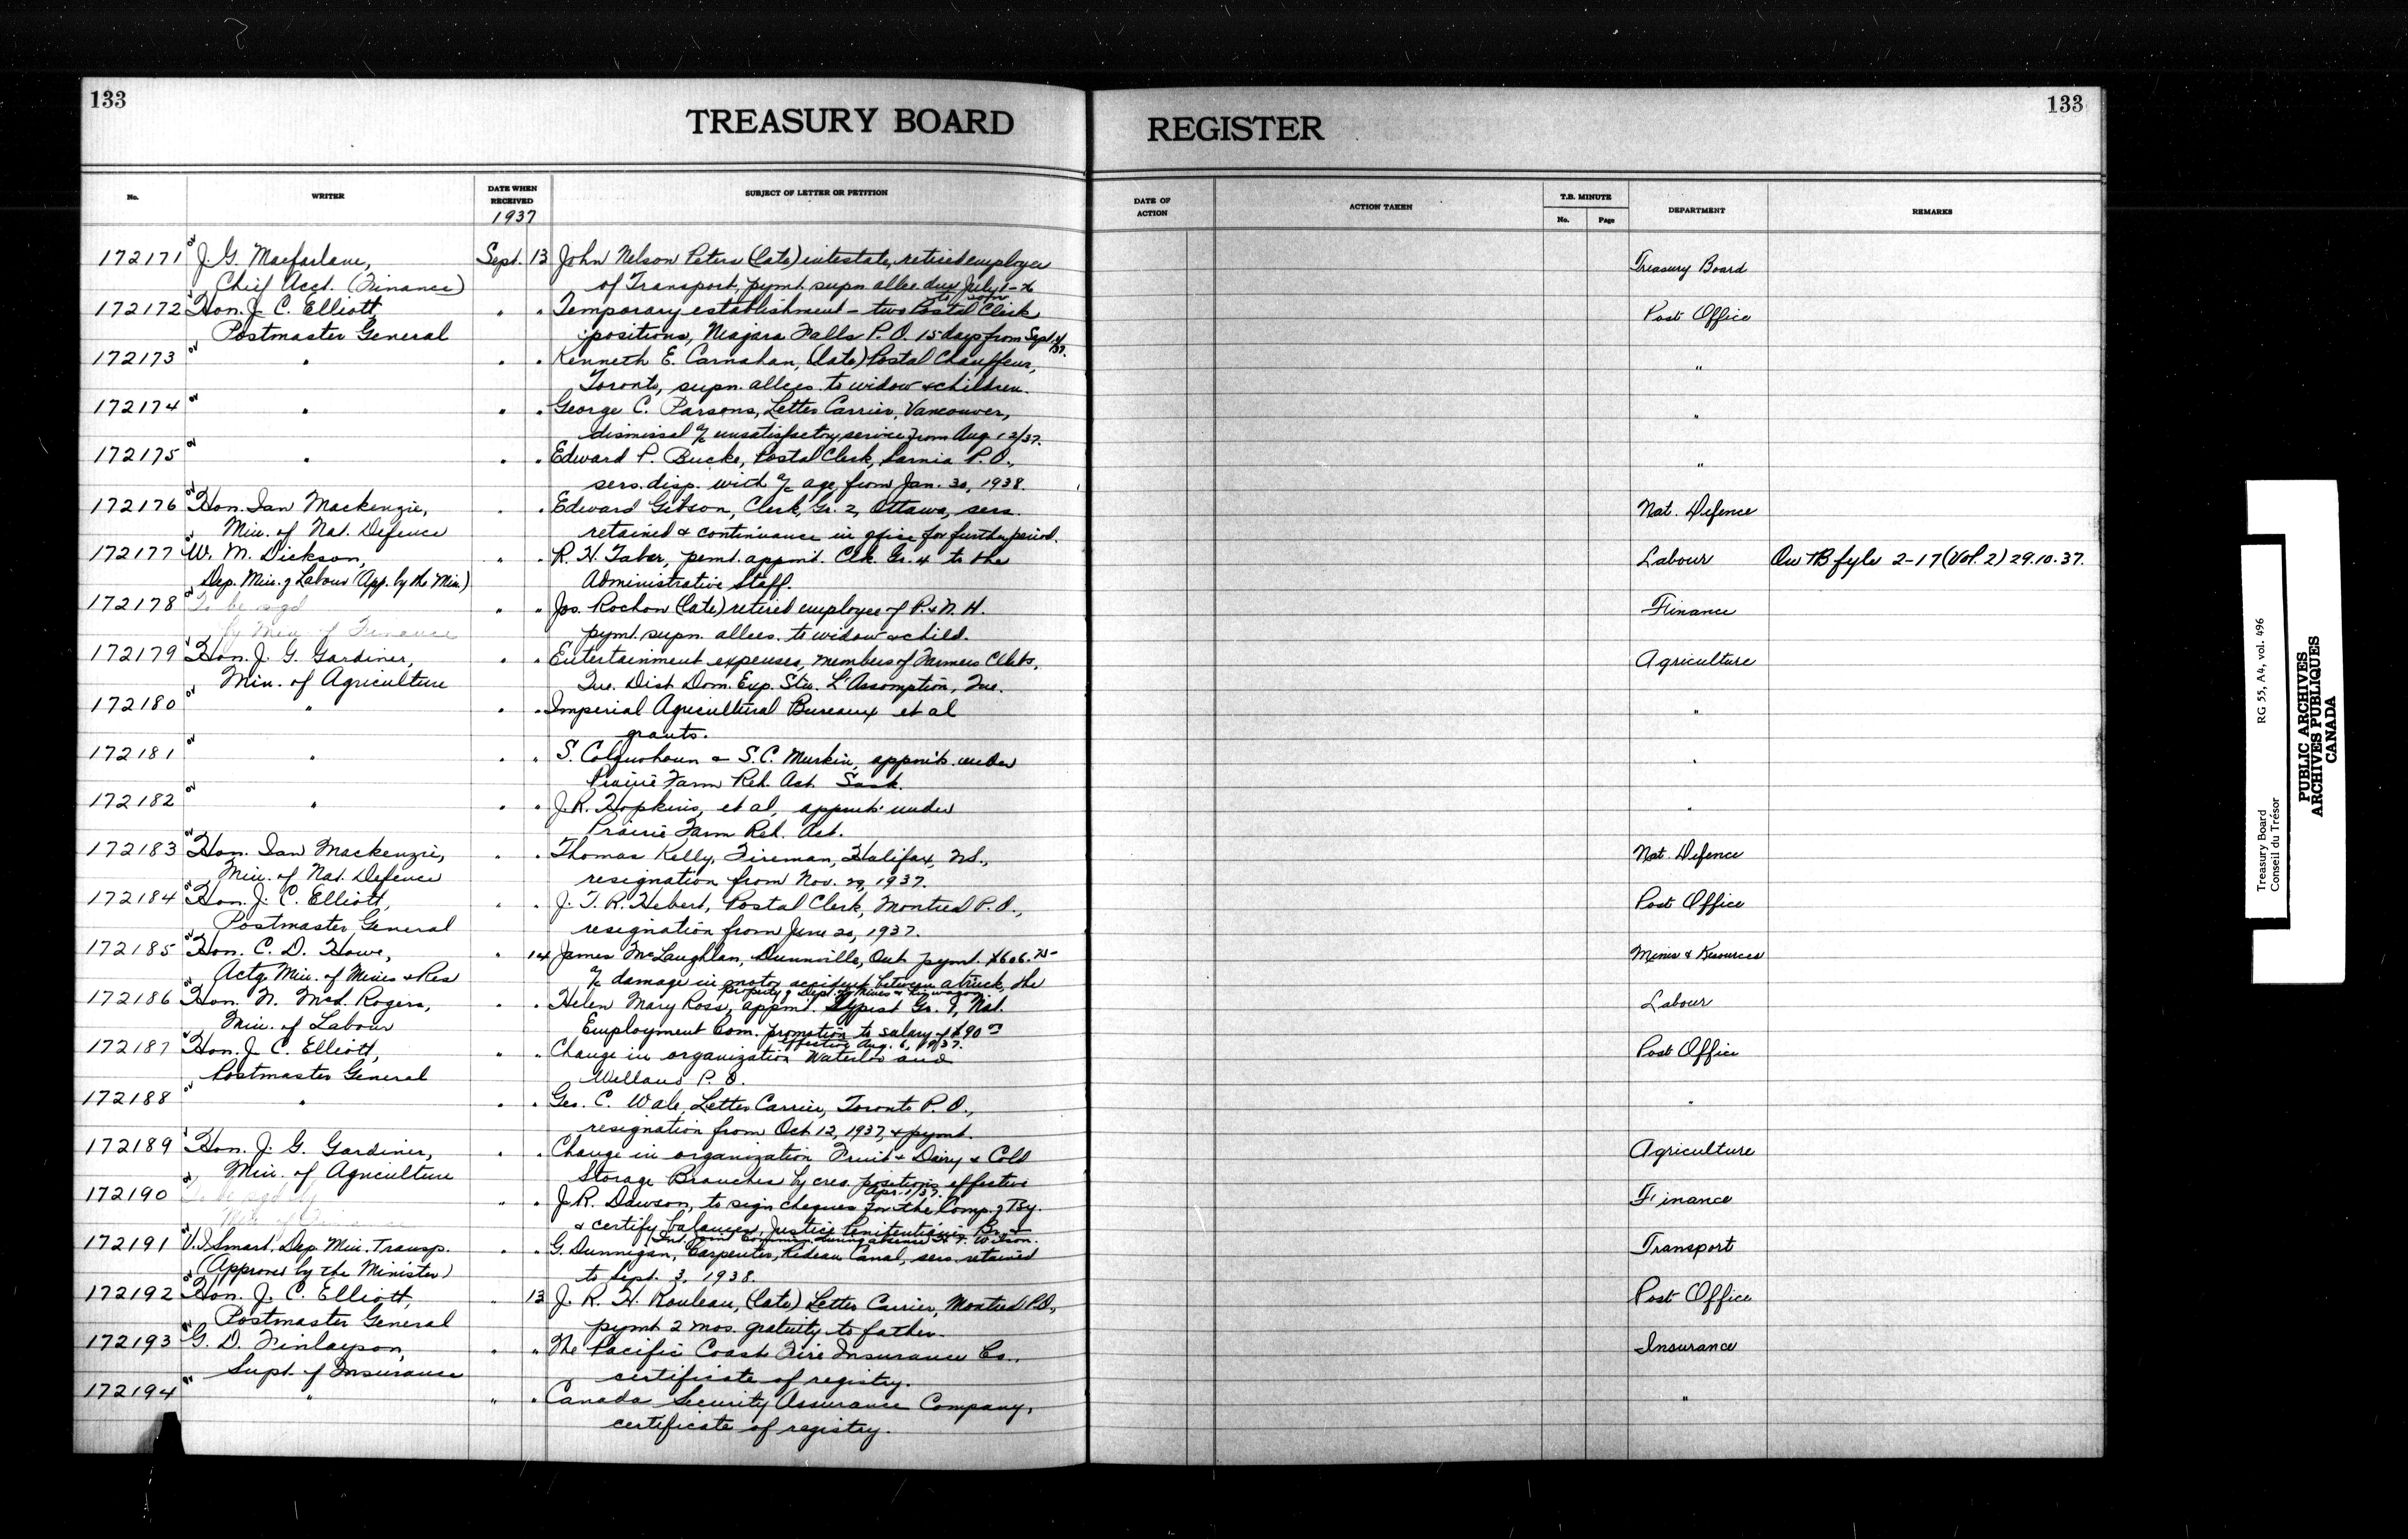 133
133
TREASURY BOARD
REGISTER
No.
WRITER
DATE WHEN RECEIVED
1937
SUBJECT OF LETTER OR PETITION
DATE OF ACTION
ACTION TAKEN
T.B. MINUTE
No.
Page
DEPARTMENT
REMARKS
172171 J. G. Macfarlane, Sept. 13 John Nelson Peters (late) intestate, retired employee Treasury Board
Chief Acct. (Finance) of Transport, pymt. supn allce. due July 1-
172172 Hon. J. C. Elliott, " " Temporary establishment - two Postal Clerk Post Office
Postmaster General positions, Niagara Falls P.O. 15 days from Sept. /37.
172173 " " " Kenneth E. Carnahan, (late) Postal Chauffeur, "
Toronto, supn. allces. to widow & children.
172174 " " " George C. Parsons, Letter Carrier, Vancouver, "
dismissal a/c unsatisfactory service from Aug. 12/37.
172175 " " " Edward P. Bucke, Postal Clerk, Sarnia P.O., "
sers. disp. with a/c age, from Jan. 30, 1938.
172176 Hon. Ian Mackenzie, " " Edward Gibson, Clerk, Gr. 2, Ottawa, sers. Nat. Defence
Min. of Nat. Defence retained & continuance in office for further period.
172177 W. M. Dickson, " " R. H. Taber, pemt. appmt. Clk. Gr. 4 to the Labour On TB fyle 2-17 (Vol. 2) 29.10.37.
Dep. Min. of Labour (App. by the Min.) Administrative Staff.
172178 To be sgd " " Jos. Rochon (late) retired employee of P. & N. H. Finance
by Min. of Finance pymt. supn. allces. to widow & child.
172179 Hon. J. G. Gardiner, " " Entertainment expenses, members of Farmers Clubs, Agriculture
Min. of Agriculture Que. Dist. Dom. Exp. Stn. L'Assomption, Que.
172180 " " " Imperial Agricultural Bureaux et al "
grants.
172181 " " " S. Colquhoun & S. C. Murkin, appmts. under "
Prairie Farm Reh. Act. Sask.
172182 " " " J. R. Hopkins, et al, appmts. under "
Prairie Farm Reh. Act.
172183 Hon. Ian Mackenzie, " " Thomas Kelly, Fireman, Halifax, N.S., Nat. Defence
Min. of Nat. Defence resignation from Nov. 29, 1937.
172184 Hon. J. C. Elliott, " " J. T. R. Hebert, Postal Clerk, Montreal P.O., Post Office
Postmaster General resignation from June 20, 1937.
172185 Hon. C. D. Howe, " 14 James McLaughlan, Dunnville, Ont. pymt. $606.75 Mines & Resources
Actg. Min. of Mines & Res a/c damage in motor accident between a truck, the
property of Dept. of Mines & his wagon.
172186 Hon. N. McL. Rogers, " " Helen Mary Ross, appmt. Typist Gr. I, Nat. Labour
Min. of Labour Employment Com. promotion to salary of $90 00
effective Aug. 6, 1937.
172187 Hon. J. C. Elliott, " " Change in organization Waterloo and Post Office
Postmaster General Welland P. O.
172188 " " " Geo. C. Wale, Letter Carrier, Toronto P.O., "
resignation from Oct 12, 1937, & pymt.
172189 Hon. J. G. Gardiner, " " Change in organization Fruit & Dairy & Cold Agriculture
Min. of Agriculture Storage Branches by cres. positions effective
Apr. 1/37.
172190 To be sgd by " " J. R. Dawson, to sign cheques for the Comp. of Tsy. Finance
Min. of Finance & certify balances, Justice Penitentiaries Br. &
Int. Joint Commission during absence Wilson.
172191 V. I. Smart, Dep. Min. Transp. " " G. Dunnigan, Carpenter, Rideau Canal, sers. retained Transport
(Approved by the Minister) to Sept. 3, 1938.
172192 Hon. J. C. Elliott, " 13 J. R. H. Rouleau, (late) Letter Carrier, Montreal P.O., Post Office
Postmaster General pymt 2 mos. gratuity to father.
172193 G. D. Finlayson, " " The Pacific Coast Fire Insurance Co., Insurance
Supt. of Insurance certificate of registry.
172194 " " " Canada Security Assurance Company, "
certificate of registry.
Treasury Board RG 55, A4, vol. 496
Conseil du Trésor
PUBLIC ARCHIVES
ARCHIVES PUBLIQUES
CANADA